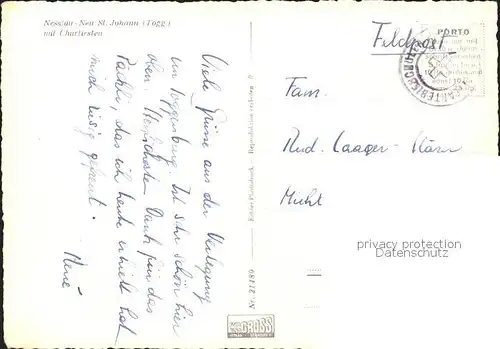 Nesslau-Neu St. Johann (Togg.)
mit Churfirsten
Viele Grüsse aus der Verlegung
im Toggenburg. Ist sehr schön hier
oben. Herzlichsten Dank für das
Päckli, das ich heute erhielt hat
mich riesig gefreut.
René
Nr. 21489
Reproduktion verboten
GROSS
Feldpost
PORTO
Fam.
Rud. Laager-
Mühl
privacy protection
Datenschutz